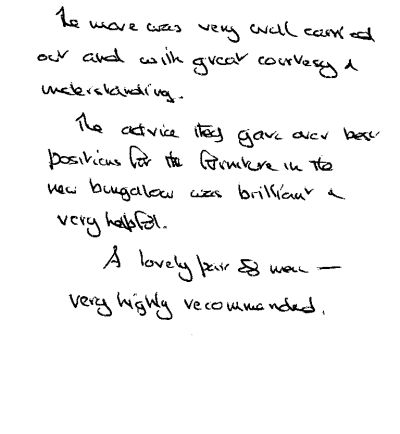 The move was very well carried
out and with great courtesy &
understanding.
The advice they gave over best
positions for the furniture in the
new bungalow was brilliant &
very helpful.
A lovely pair of men —
very highly recommended.